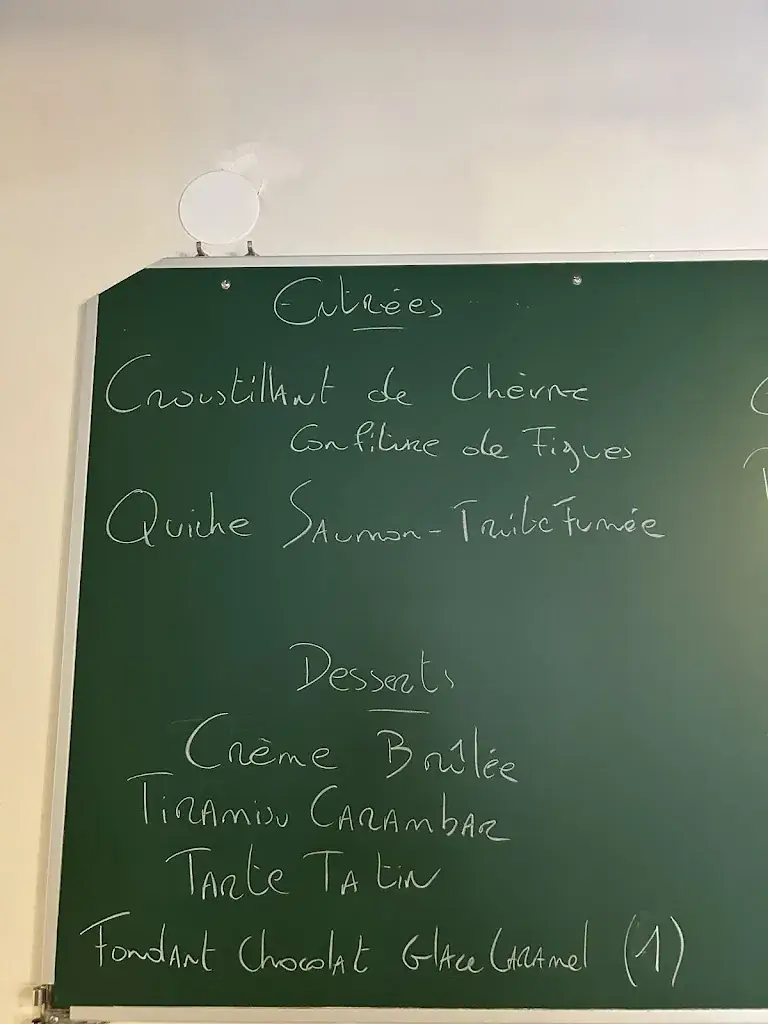 Entrées
Croustillant de Chèvre
Confiture de Figues
Quiche Saumon-Truite Fumée
Desserts
Crème Brûlée
Tiramisu Carambar
Tarte Tatin
Fondant Chocolat Glace Caramel (1)